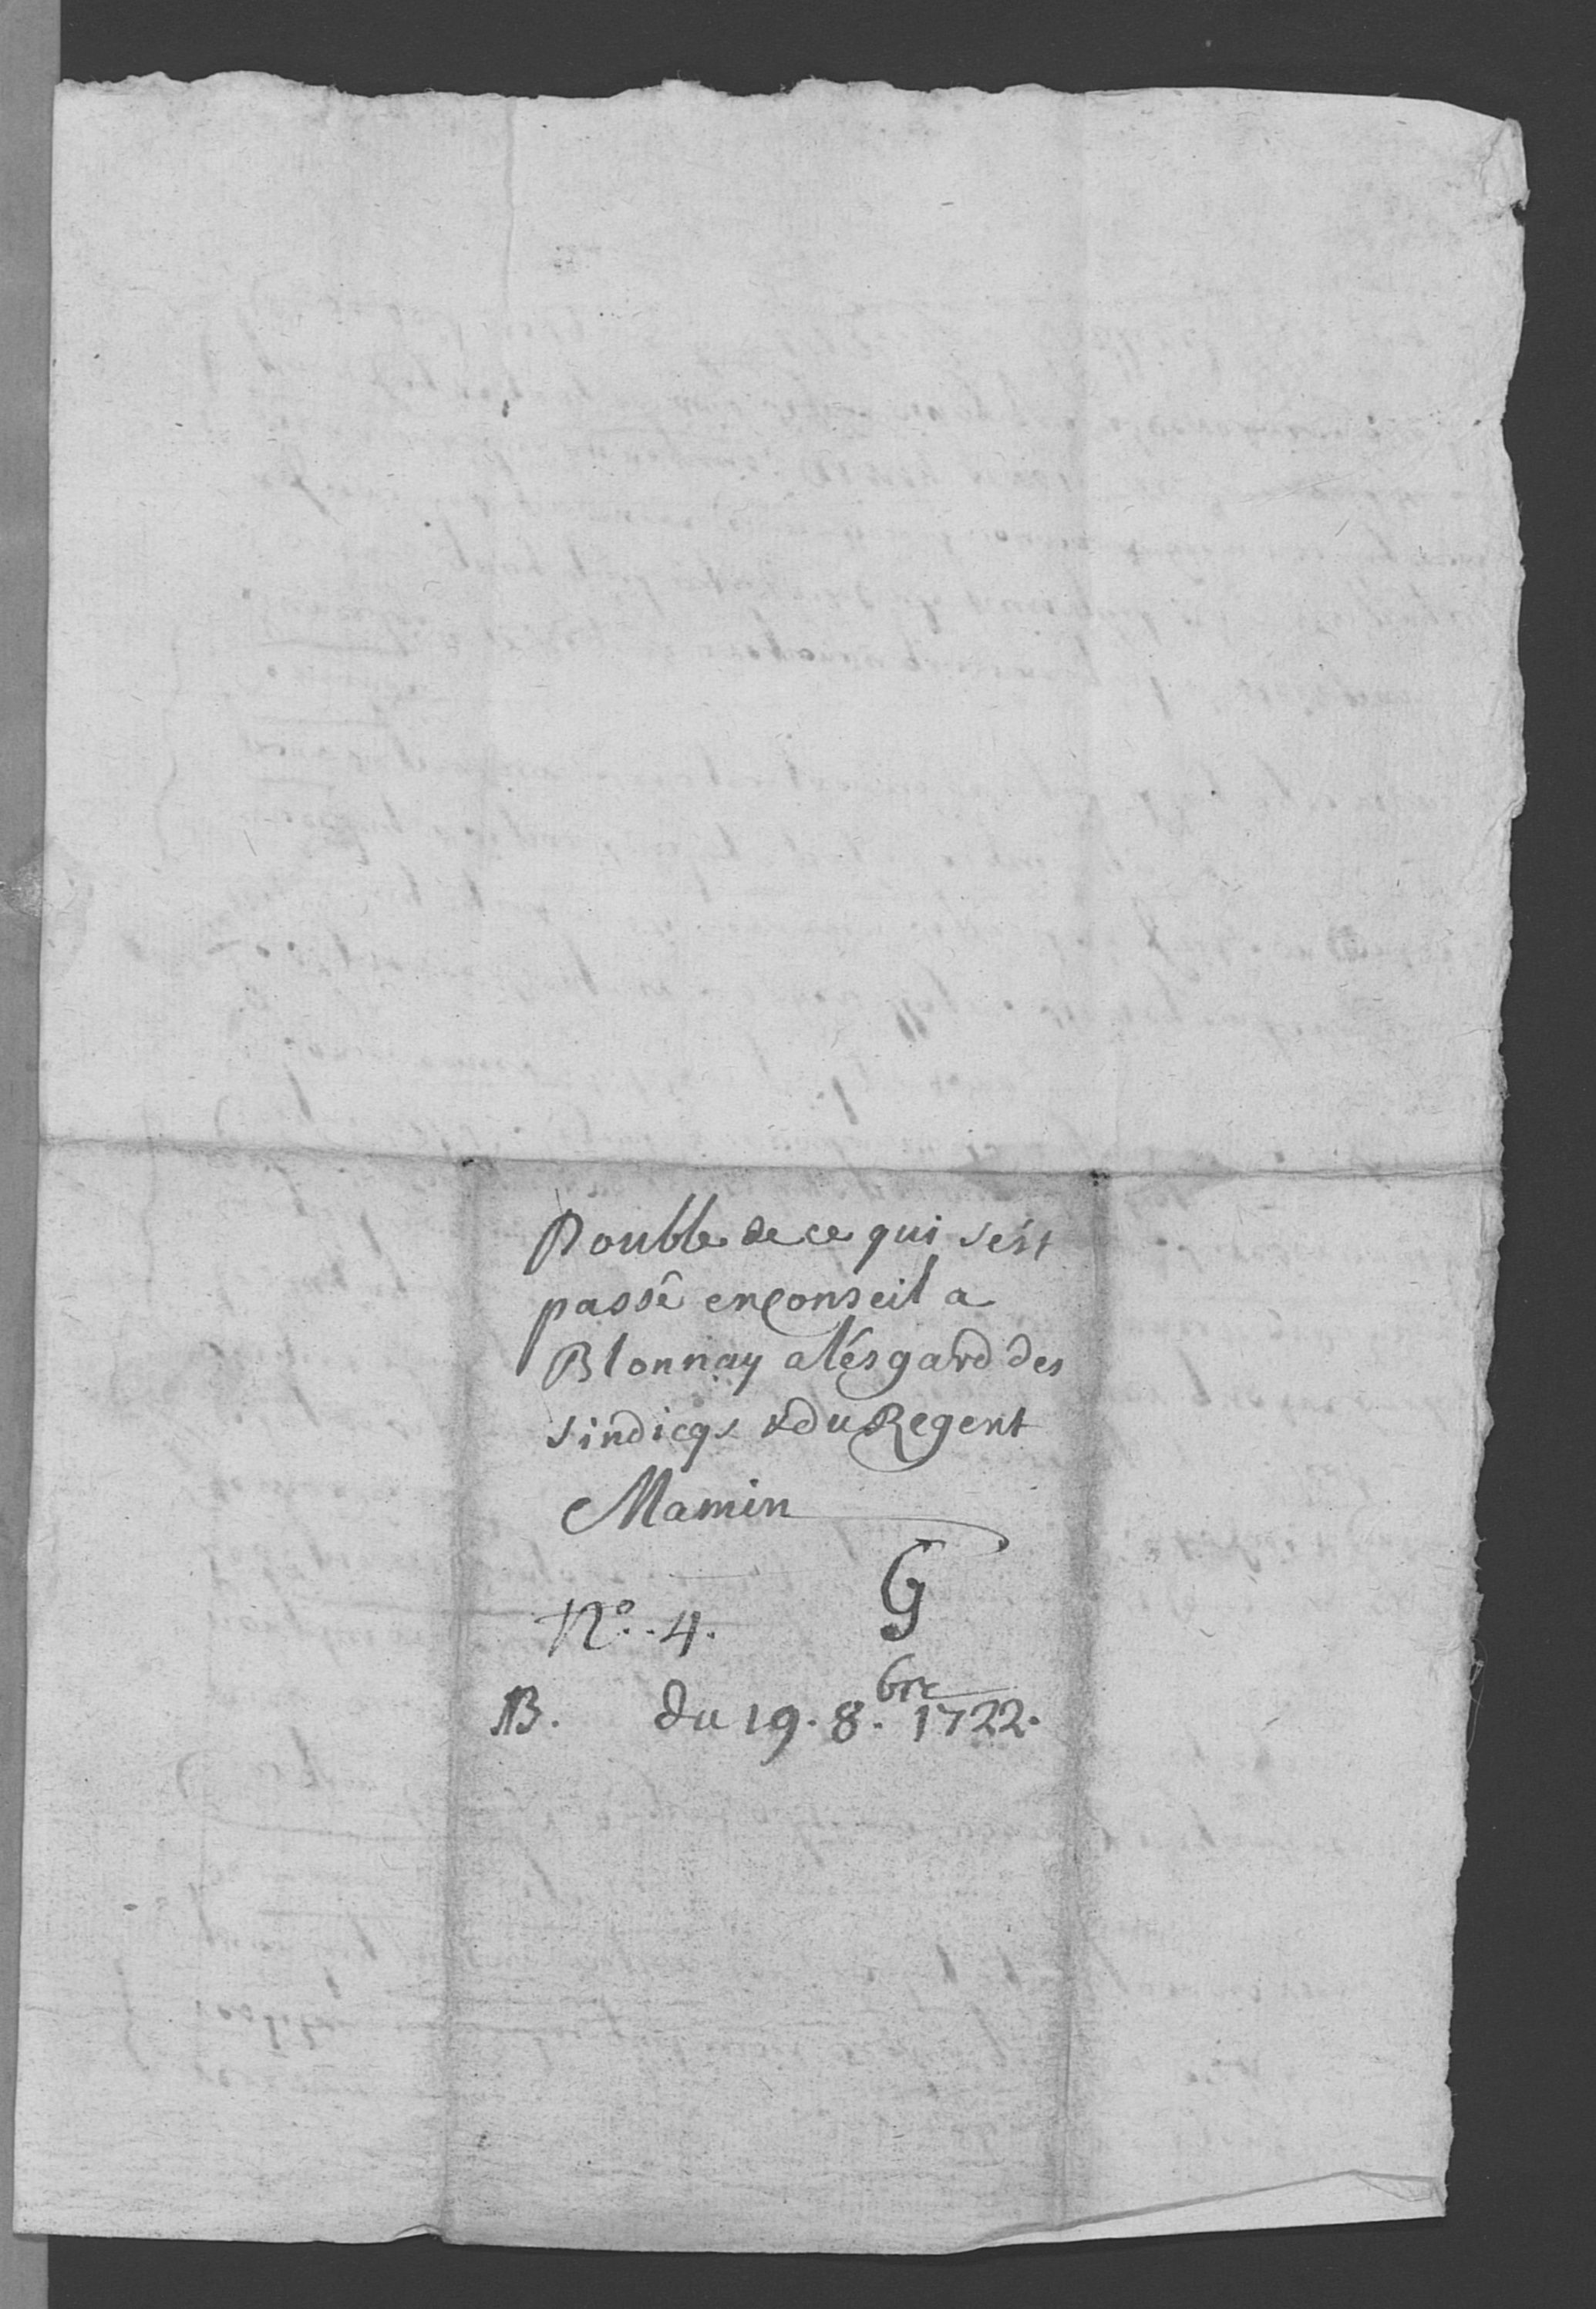 Double de ce qui s'ést
passê en Conseil a
Blonnay a l'ésgard des
sindicqs & du Regent
Mamin
G
N.º 4.
B. du 19. 8.bre 1722.